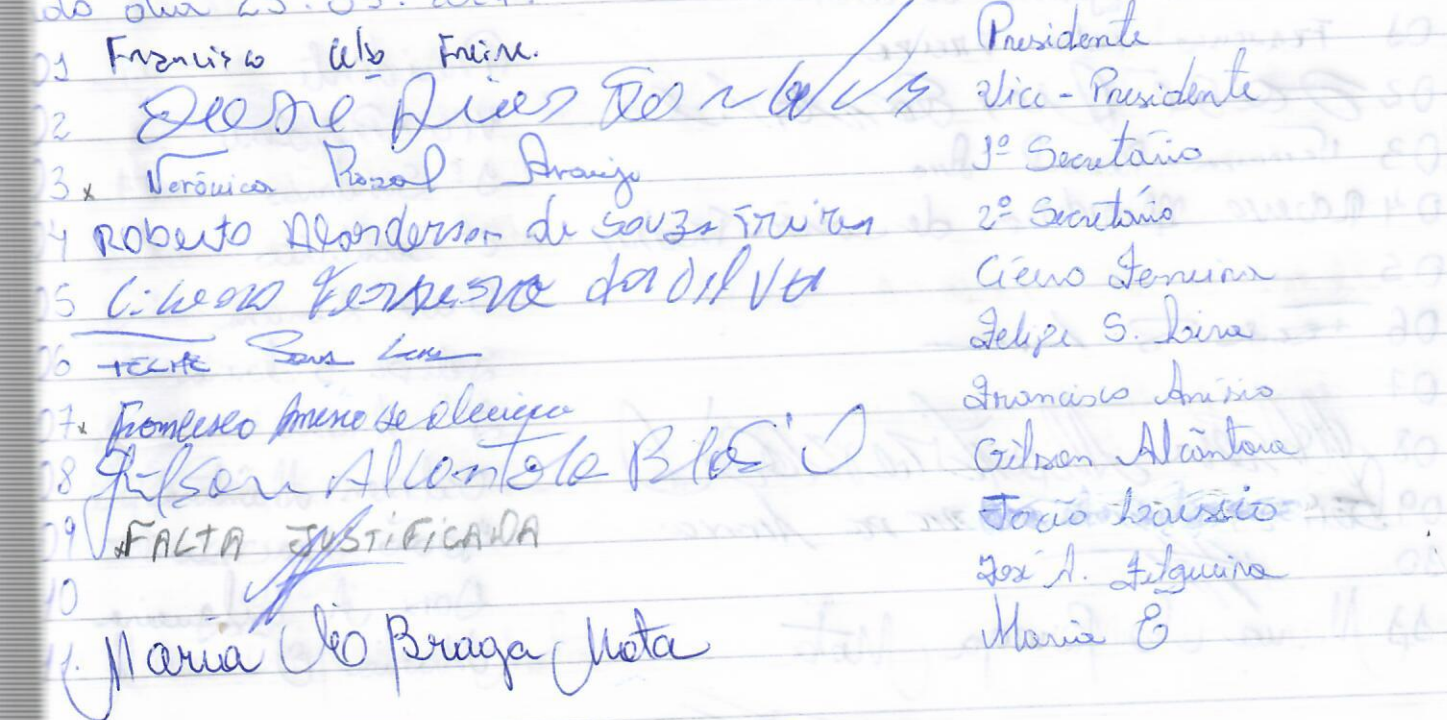 do dia 23.03.
01 Francisco Celso Freire. Presidente
02 Vice-Presidente
03 x Verônica Rozal Araujo 1º Secretário
04 Roberto Alanderson de Souza Freires 2º Secretário
05 Cicero Ferreira da Silva Cícero Ferreira
06 FELIPE Sous Lira Felipe S. Lira
07 x Francisco Anisio de Oliveira Francisco Anísio
08 Gilson Alcantara Gilson Alcântara
09 x FALTA JUSTIFICADA João
10 José A. Filgueira
11. Maria Braga Mota Maria E